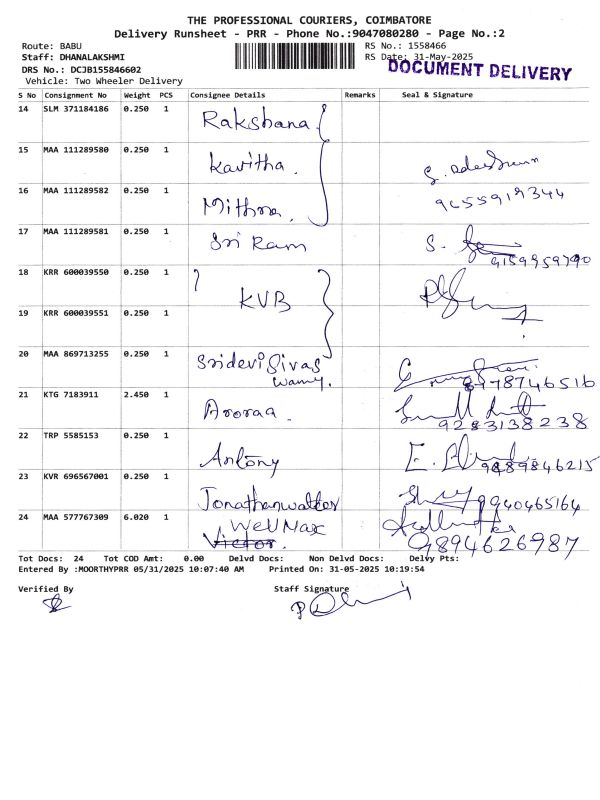 THE PROFESSIONAL COURIERS, COIMBATORE
Delivery Runsheet - PRR - Phone No.:9047080280 - Page No.:2
Route: BABU RS No.: 1558466
Staff: DHANALAKSHMI RS Date: 31-May-2025
DRS No.: DCJB155846602 DOCUMENT DELIVERY
Vehicle: Two Wheeler Delivery
S No Consignment No Weight PCS Consignee Details Remarks Seal & Signature
14 SLM 371184186 0.250 1 Rakshana
15 MAA 111289580 0.250 1 Kavitha.
16 MAA 111289582 0.250 1 Mithra. 9655919344
17 MAA 111289581 0.250 1 Sri Ram S. 9159959790
18 KRR 600039550 0.250 1 KVB
19 KRR 600039551 0.250 1
20 MAA 869713255 0.250 1 Sridevi Sivas
wamy. 8978746516
21 KTG 7183911 2.450 1 Aroraa. 9283138238
22 TRP 5585153 0.250 1 Antony E. 9489846215
23 KVR 696567001 0.250 1 Jonathanwalker 9940465164
24 MAA 577767309 6.020 1 Welmax
Victor. 9894626987
Tot Docs: 24 Tot COD Amt: 0.00 Delvd Docs: Non Delvd Docs: Delvy Pts:
Entered By :MOORTHYPRR 05/31/2025 10:07:40 AM Printed On: 31-05-2025 10:19:54
Verified By Staff Signature